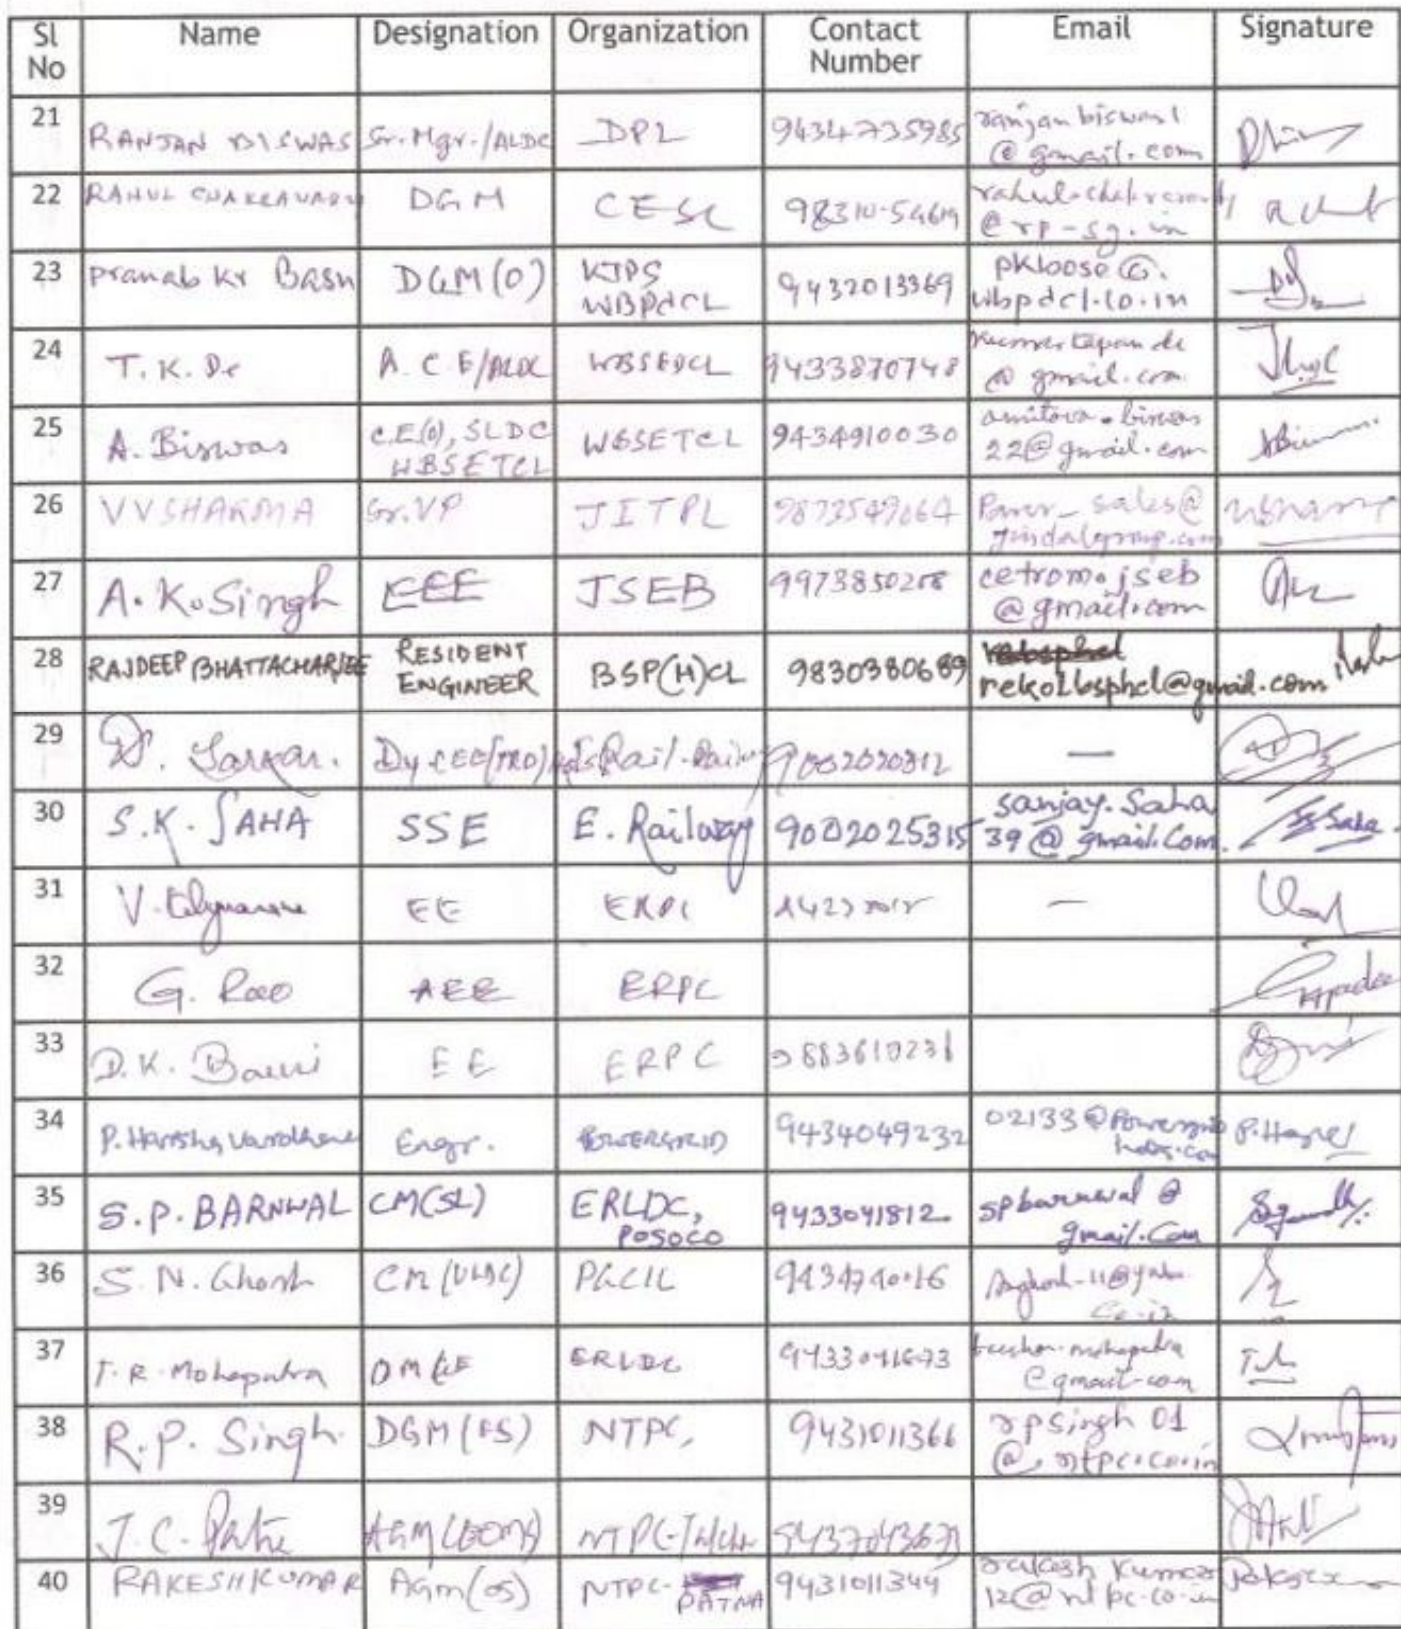 Sl No | Name | Designation | Organization | Contact Number | Email | Signature
21 | RANJAN BISWAS | Sr. Mgr./ALDC | DPL | 9434735985 | ranjanbiswas1 @ gmail.com
22 | RAHUL CHAKRAVARTY | DGM | CESC | @rp-sg.in
23 | Pranab Kr Basu | DGM (O) | KTPS WBPDCL | 9432013369 | pkboose@. wbpdcl.co.in
24 | T. K. De | A. C. E/ALDC | WBSEDCL | 9433870748 | kumartapan de @ gmail.com
25 | A. Biswas | C.E(O), SLDC WBSETCL | WBSETCL | 9434910030 | amitava.biswas 22@gmail.com
26 | VVSHARMA | Sr. VP | JITPL | Power_sales@ jindalgroup.com
27 | A. K. Singh | EEE | JSEB | cetromo.jseb @gmail.com
28 | RAJDEEP BHATTACHARJEE | RESIDENT ENGINEER | BSP(H)CL | 9830380689 | rekolbsphcl@gmail.com
29 | D. Sarkar. | Dy CEE(TRD) | 9002020312 | —
30 | S.K. SAHA | SSE | E. Railway | 9002025315 | sanjay.Saha 39@gmail.Com. | Saha
31 | V. | EE | ERPC | —
32 | G. Rao | AEE | ERPC
33 | D.K. Bauri | EE | ERPC | 9883610236
34 | P. Harsha Vardhana | Engr. | POWERGRID | 9434049232 | 02133@Powergrid | P. Harsha
35 | S.P. BARNWAL | CM(SL) | ERLDC, POSOCO | 9433041812 | spbarnwal@ gmail.Com
36 | S. N. Ghosh | CM (ULDC) | PGCIL | 9434740016
37 | T. R. Mohapatra | DM | ERLDC | @gmail.com
38 | R.P. Singh | DGM (OS) | NTPC, | 9431011366 | rpsingh 01 @ ntpc.co.in
39 | J. C. | NTPC-
40 | RAKESH KUMAR | AGM (OS) | NTPC- PATNA | 9431011344 | rakesh kumar 12@ntpc.co.in